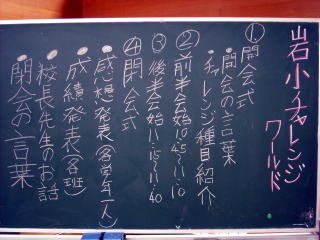 岩小チャレンジ
ワールド
①開会式
・開会の言葉
・チャレンジ種目紹介
②前半会始10:45~11:10
③後半会始11:15~11:40
④閉会式
・感想発表(各学年一人)
・成績発表(各班)
・校長先生のお話
・閉会の言葉